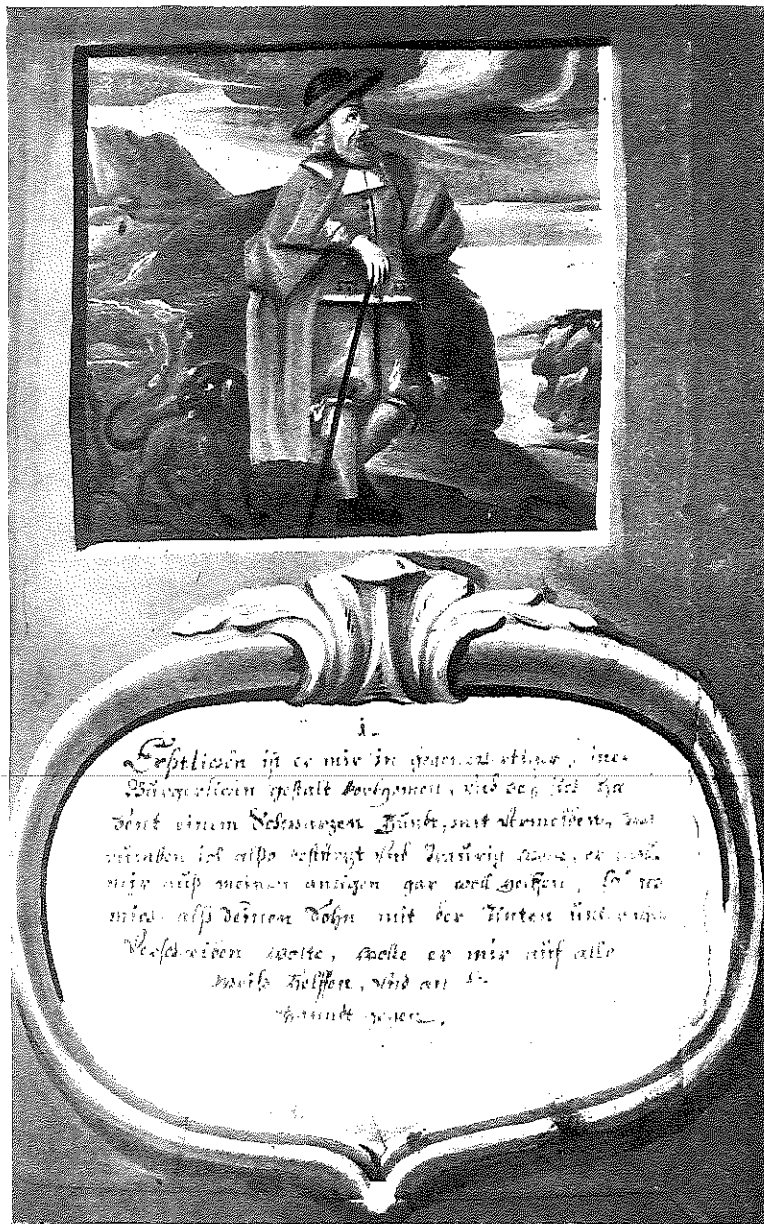 1.
Erstlichen ist er mir in gegenwertiger, ine
Bürgerlichen gestalt vorkomen, und bey sich ha
bent einem Schwarzen Hundt, mit vermelden, wa
rumben ich also bestürzt und Traurig were, er wolle
mir auß meinen gar woll helffen,
mich alß deinen Sohn mit der Tinten
Verschreiben wolte, wolte er mir auf alle
weiß helffen, und an
handt gehen.